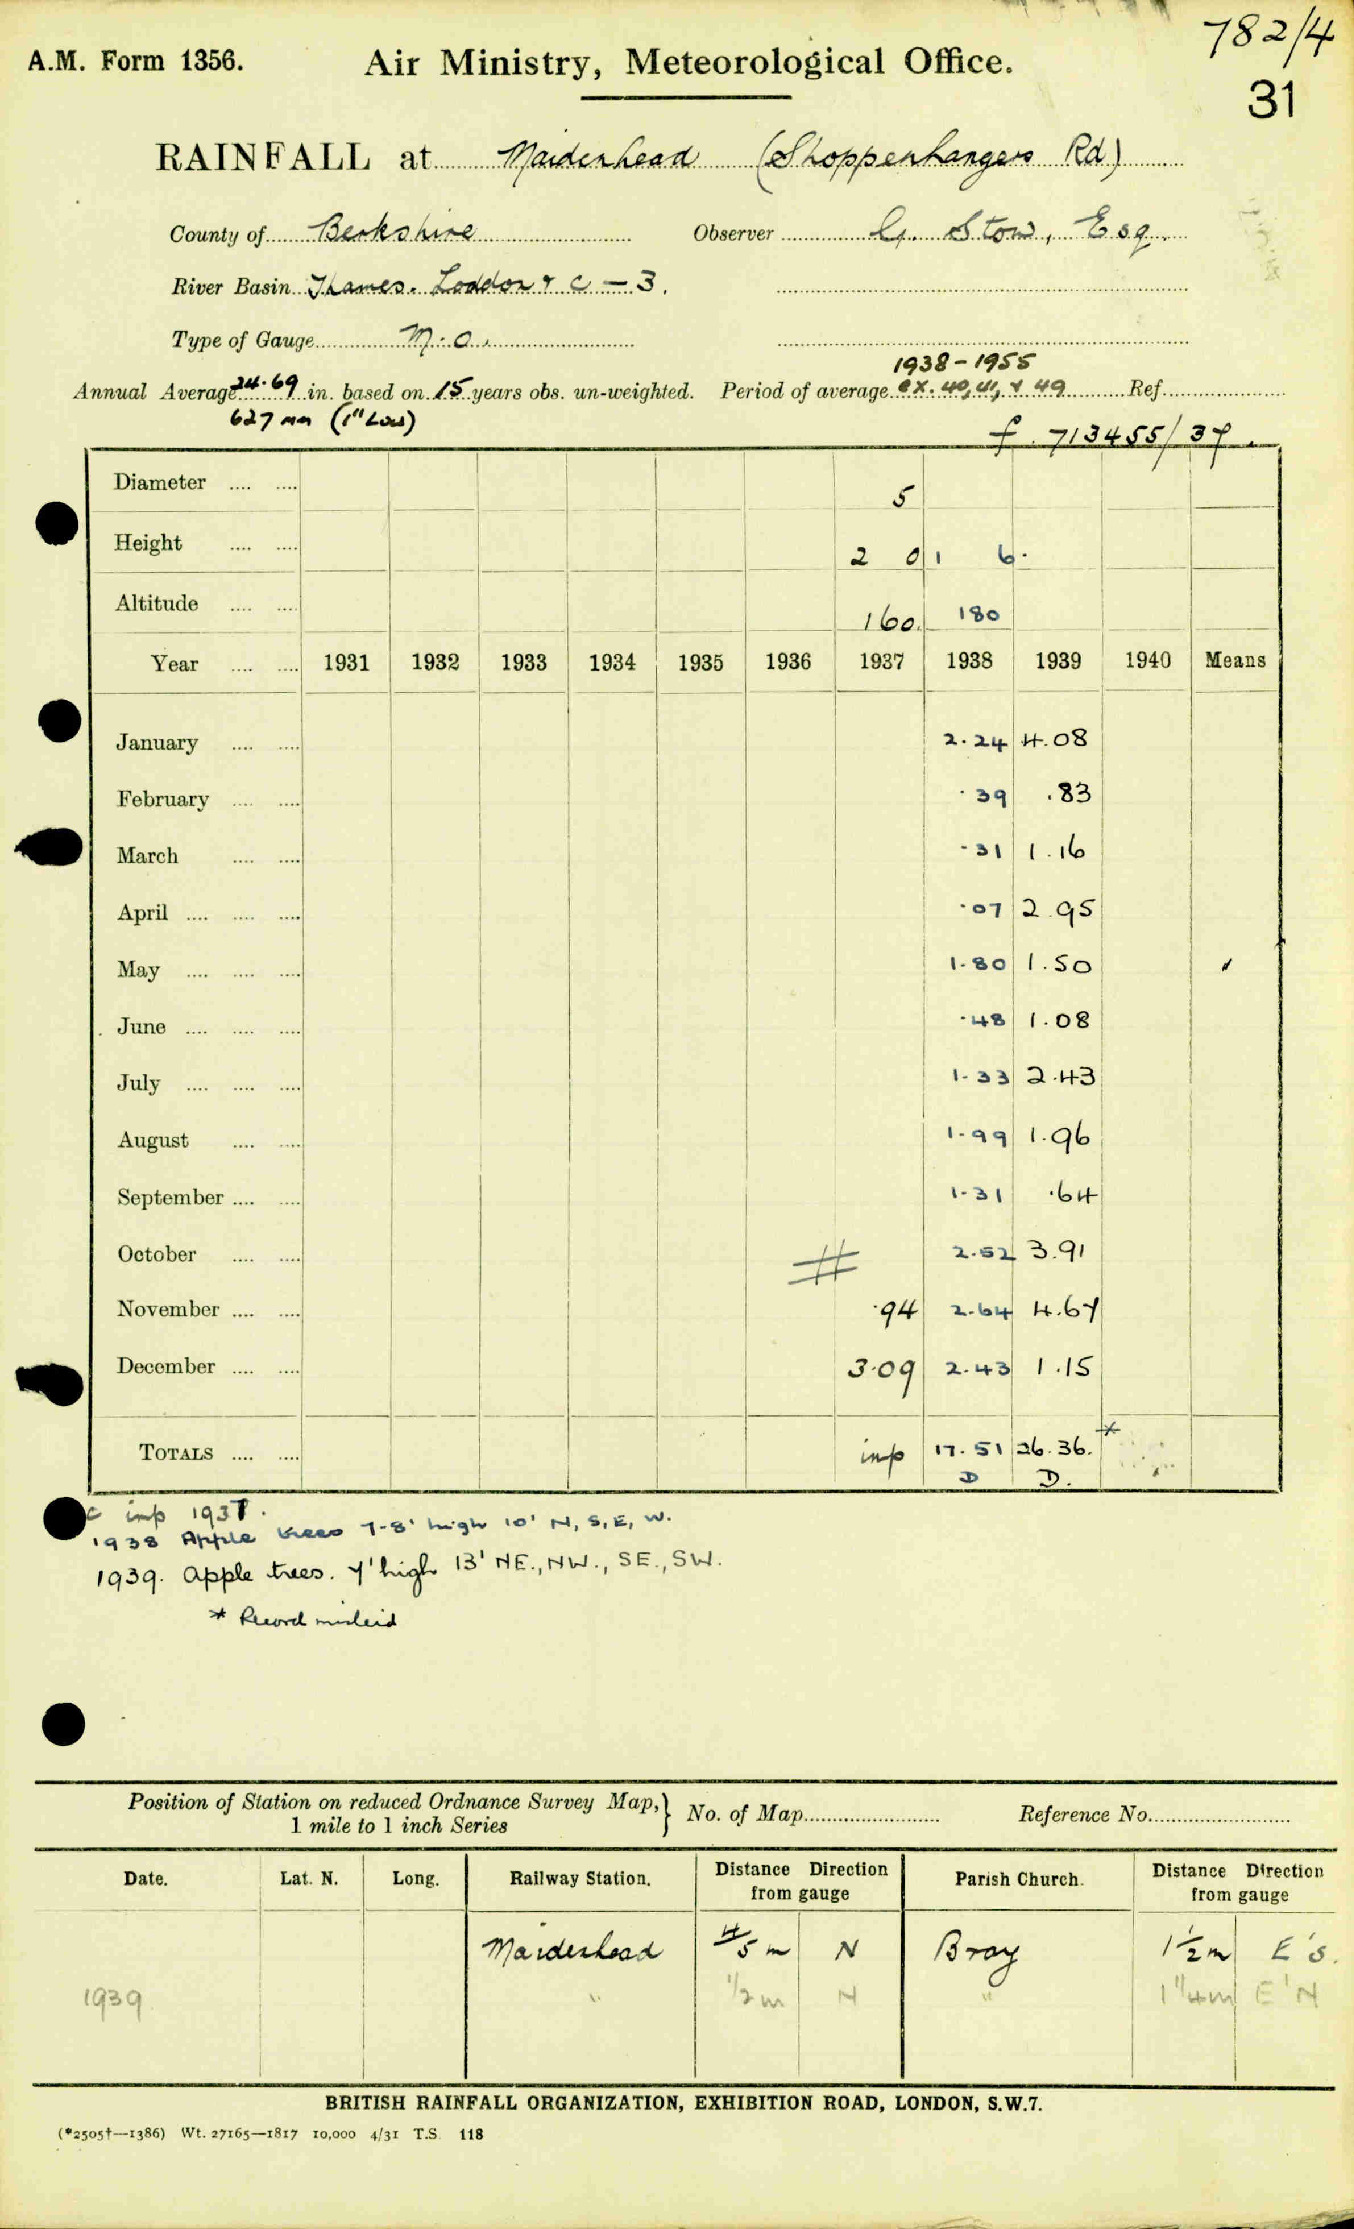 782/4
A.M. Form 1356. Air Ministry, Meteorological Office.
31
RAINFALL at Maidenhead (Shoppenhangers Rd)
County of Berkshire Observer G. Stow, Esq.
River Basin Thames. Loddon & C — 3.
Type of Gauge M.O.
1938 - 1955
Annual Average 24.69 in. based on 15 years obs. un-weighted. Period of average ex. 40, 41, & 49 Ref.
627 mm (1" Low)
f. 713455/37.
Diameter .... .... 5
Height .... .... 2 0 1 6.
Altitude .... .... 160. 180
Year .... .... 1931 1932 1933 1934 1935 1936 1937 1938 1939 1940 Means
January .... .... 2.24 4.08
February .... .... .39 .83
March .... .... .31 1.16
April .... .... .... .07 2.95
May .... .... .... 1.80 1.50
June .... .... .... .48 1.08
July .... .... .... 1.33 2.43
August .... .... 1.99 1.96
September .... .... 1.31 .64
October .... .... 2.52 3.91
November .... .... .94 2.64 4.67
December .... .... 3.09 2.43 1.15
TOTALS .... .... imp 17.51 26.36. *
D D.
c imp 1937.
1938 Apple trees 7-8' high 10' N, S, E, W.
1939. Apple trees. 7' high 13' NE., NW., SE., SW.
* Record mislaid
Position of Station on reduced Ordnance Survey Map,} No. of Map Reference No.
1 mile to 1 inch Series
Date. Lat. N. Long. Railway Station. Distance Direction from gauge Parish Church. Distance Direction from gauge
Maidenhead 4/5 m N Bray 1½ m E's.
1939 " 1/2 m N " 1 1/4 m E'N
BRITISH RAINFALL ORGANIZATION, EXHIBITION ROAD, LONDON, S.W.7.
(*2505†—1386) Wt. 27165—1817 10,000 4/31 T.S. 118